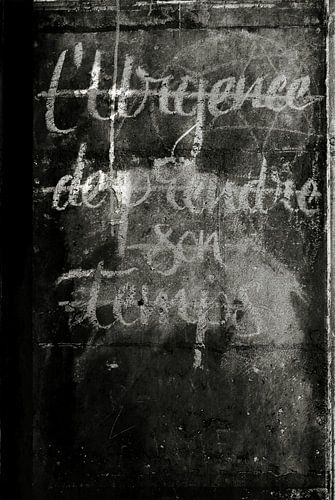 l'Urgence
de prendre
son
Temps